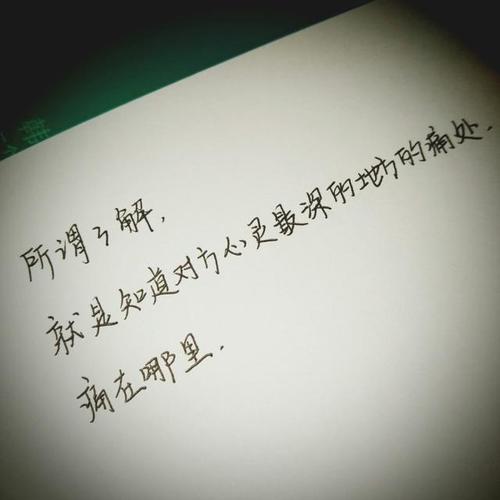 所谓了解,
就是知道对方心灵最深的地方的痛处.
痛在哪里.